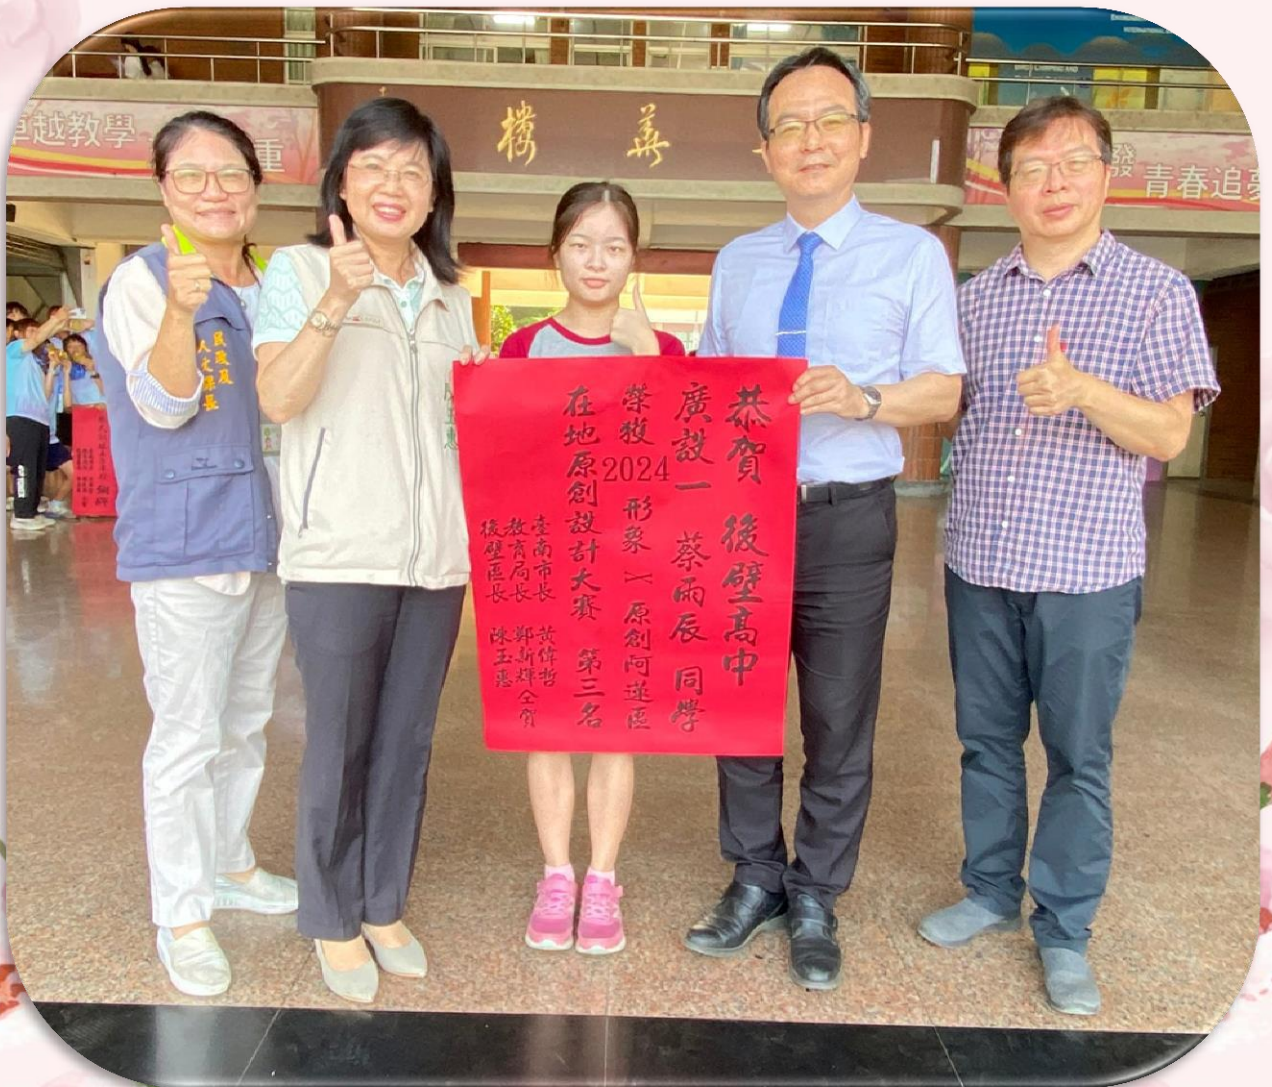 卓越教學
重
樓 華
發
青春追夢
恭賀 後壁高中
廣設一 蔡雨辰 同學
榮獲2024 形象 X 原創阿蓮區
在地原創設計大賽 第三名
臺南市長 黃偉哲
教育局長 鄭新輝 仝賀
後壁區長 陳玉惠
人文課長